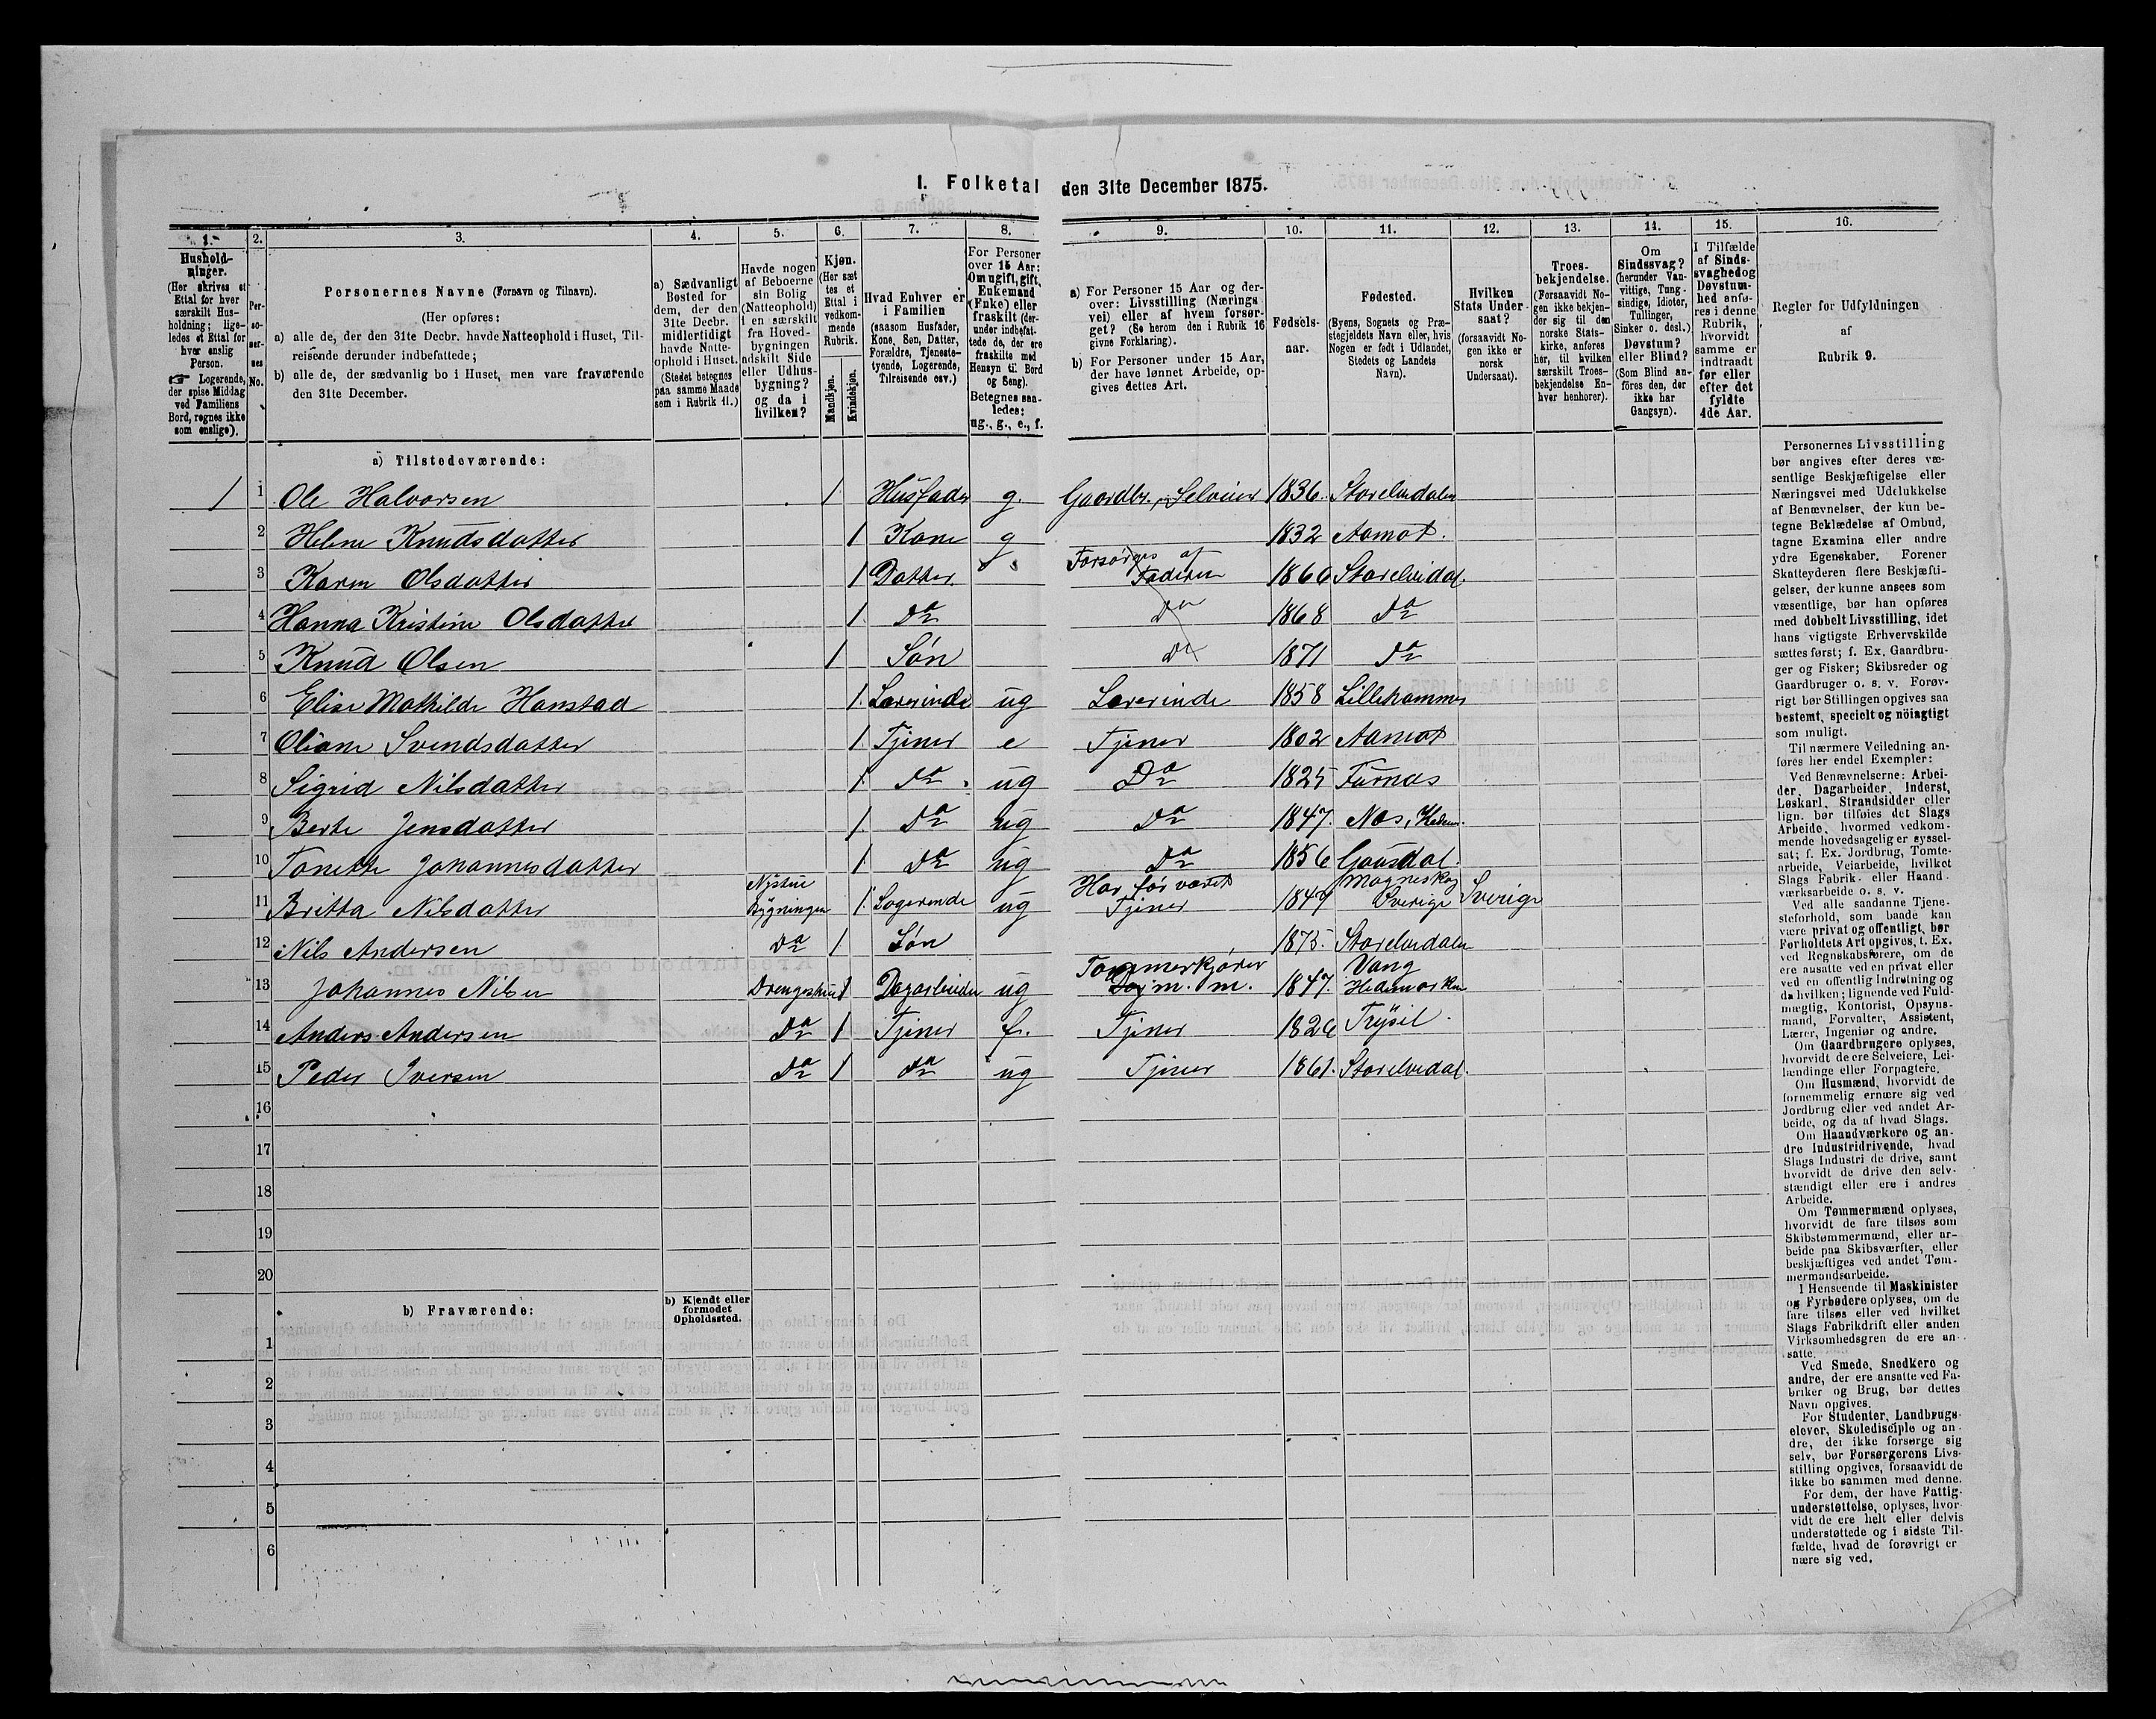 1. Folketal den 31te December 1875.
1. 2. 3. 4. 5. 6. 7. 8. 9. 10. 11. 12. 13. 14. 15. 16.
Hushold-
ninger.
(Her skrives et
Ettal for hver
særskilt Hus-
holdning; lige-
ledes et Ettal for
hver enslig
Person.
☞ Logerende,
der spise Middag
ved Familiens
Bord, regnes ikke
som enslige).
Per-
so-
ner-
nes
No.
Personernes Navne (Fornavn og Tilnavn).
(Her opføres:
a) alle de, der den 31te Decbr. havde Natteophold i Huset, Til-
reisende derunder indbefattede;
b) alle de, der sædvanlig bo i Huset, men vare fraværende
den 31te December.
a) Sædvanligt
Bosted for
dem, der den
31te Decbr.
midlertidigt
havde Natte-
ophold i Huset.
(Stedet betegnes
paa samme Maade
som i Rubrik 11.)
Havde nogen
af Beboerne
sin Bolig
(Natteophold)
i en særskilt
fra Hoved-
bygningen
adskilt Side
eller Udhus-
bygning?
og da i
hvilken?
Kjøn.
(Her sæt
tes et
Ettal i
vedkom-
mende
Rubrik.
Mandkjøn.
Kvindekjøn.
Hvad Enhver er
i Familien
(saasom Husfader,
Kone, Søn, Datter,
Forældre, Tjeneste-
tyende, Logerende,
Tilreisende osv.)
For Personer
over 15 Aar:
Om ugift, gift,
Enkemand
(Enke) eller
fraskilt (der-
under indbefat-
tede de, der ere
fraskilte med
Hensyn til Bord
og Seng).
Betegnes saa-
ledes:
ug., g., e., f.
a) For Personer 15 Aar og der-
over: Livsstilling (Nærings
vei) eller af hvem forsør-
get? (Se herom den i Rubrik 16
givne Forklaring).
b) For Personer under 15 Aar,
der have lønnet Arbeide, op-
gives dettes Art.
Fødsels-
aar.
Fødested.
(Byens, Sognets og Præ-
stegjeldets Navn eller, hvis
Nogen er født i Udlandet,
Stedets og Landets
Navn).
Hvilken
Stats Under-
saat?
(forsaavidt No-
gen ikke er
norsk
Undersaat).
Troes-
bekjendelse.
(Forsaavidt No-
gen ikke bekjen-
der sig til den
norske Stats-
kirke, anføres
her, til hvilken
særskilt Troes-
bekjendelse En-
hver henhører).
Om
Sindssvag?
(herunder Van-
vittige, Tung-
sindige, Idioter,
Tullinger,
Sinker o. desl.)
Døvstum?
eller Blind?
(Som Blind an-
føres den, der
ikke har
Gangsyn).
I Tilfælde
af Sinds-
svaghed og
Døvstum-
hed anfø-
res i denne
Rubrik,
hvorvidt
samme er
indtraadt
før eller
efter det
fyldte
4de Aar.
Regler for Udfyldningen
af
Rubrik 9.
a) Tilstedeværende:
1 1 Ole Halvorsen 1 Husfader g. Gaardbr. Selveier 1836. Storelvedalen
2 Helene Knudsdatter 1 Kone g 1832 Aamot.
3 Karen Olsdatter 1 Datter Forsørges af Faderen 1866 Storelvedal.
4 Hanna Kristine Olsdatter 1 Do Do 1868 Do
5 Knud Olsen 1 Søn Do 1871 Do
6 Elise Mathilde Hanstad 1 Lærerinde ug Lærerinde 1858 Lillehammer
7 Oliane Svendsdatter 1 Tjener e Tjener 1802 Aamot
8 Sigrid Nilsdatter 1 Do ug Do 1825 Furnæs
9 Berte Jensdatter 1 Do ug Do 1847. Næs, Hedem.
10 Tonette Johannesdatter 1 Do ug Do 1856 Gausdal.
11 Britta Nilsdatter Nystue Bygningen 1 Logerende ug Har før været Tjener 1847 Magneskog Sverige Sverige
12 Nils Andersen Do 1 Søn 1875. Storelvedalen
13 Johannes Nilsen Drengestuen 1 Dagarbeider ug Tømmerkjører m. m. 1847. Vang Hedemarken
14 Anders Andersen Do 1 Tjener f. Tjener 1826 Trysil.
15 Peder Iversen Do 1 Do ug Tjener 1861. Storelvedal.
16
17
18
19
20
b) Fraværende:
b) Kjendt eller
formodet
Opholdssted.
1
2
3
4
5
6
Personernes Livsstilling
bør angives efter deres væ-
sentlige Beskjæftigelse eller
Næringsvei med Udelukkelse
af Benævnelser, der kun be-
tegne Beklædelse af Ombud,
tagne Examina eller andre
ydre Egenskaber. Forener
Skatteyderen flere Beskjæfti-
gelser, der kunne ansees som
væsentlige, bør han opføres
med dobbelt Livsstilling, idet
hans vigtigste Erhvervskilde
sættes først; f. Ex. Gaardbru-
ger og Fisker; Skibsreder og
Gaardbruger o. s. v. Forøv-
rigt bør Stillingen opgives saa
bestemt, specielt og nöiagtigt
som muligt.
Til nærmere Veiledning an-
føres her endel Exempler:
Ved Benævnelserne: Arbei-
der, Dagarbeider, Inderst,
Løskarl, Strandsidder eller
lign. bør tilføies det Slags
Arbeide, hvormed vedkom-
mende hovedsagelig er syssel-
sat; f. Ex. Jordbrug, Tomte-
arbeide, Veiarbeide, hvilket
Slags Fabrik- eller Haand-
værksarbeide o. s. v.
Ved alle saadanne Tjene-
steforhold, som baade kan
være privat og offentligt, bør
Forholdets Art opgives, t. Ex.
ved Regnskabsførere, om de
ere ansatte ved en privat eller
ved en offentlig Indretning og
da hvilken; lignende ved Fuld-
mægtig, Kontorist, Opsyns-
mand, Forvalter, Assistent,
Lærer, Ingeniør og andre.
Om Gaardbrugere oplyses,
hvorvidt de ere Selveiere, Lei-
lændinge eller Forpagtere.
Om Husmænd, hvorvidt de
fornemmelig ernære sig ved
Jordbrug eller ved andet Ar-
beide, og da af hvad Slags.
Om Haandværkere og an-
dre Industridrivende, hvad
Slags Industri de drive, samt
hvorvidt de drive den selv-
stændigt eller ere i andres
Arbeide.
Om Tømmermænd oplyses,
hvorvidt de fare tilsøs som
Skibstømmermænd, eller ar-
beide paa Skibsværfter, eller
beskjæftiges ved andet Tøm-
mermandsarbeide.
I Henseende til Maskinister
og Fyrbødere oplyses, om de
fare tilsøs eller ved hvilket
Slags Fabrikdrift eller anden
Virksomhedsgren de ere an-
satte.
Ved Smede, Snedkere og
andre, der ere ansatte ved Fa-
briker og Brug, bør dettes
Navn opgives.
For Studenter, Landbrugs-
elever, Skoledisciple og an-
dre, der ikke forsørge sig
selv, bør Forsørgerens Livs-
stilling opgives, forsaavidt de
ikke bo sammen med denne.
For dem, der have Fattig-
understøttelse, oplyses, hvor-
vidt de ere helt eller delvis
understøttede og i sidste Til-
fælde, hvad de forøvrigt er
nære sig ved.